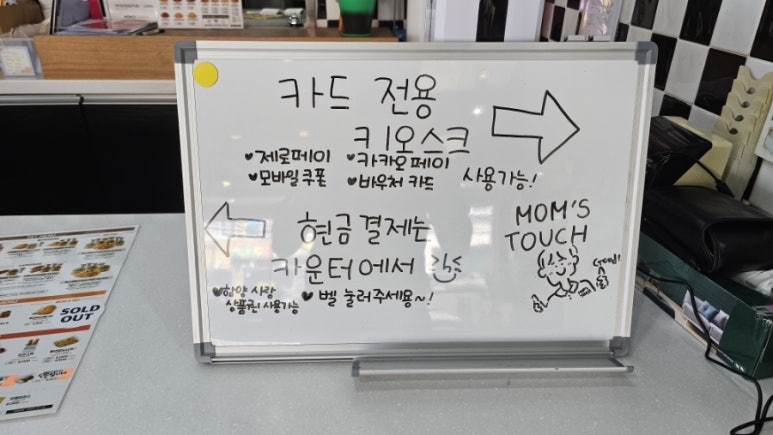 카드 전용
키오스크
제로페이 카카오페이
모바일쿠폰 바우처 카드 사용가능!
현금결제는
카운터에서
함양 사랑
상품권 사용가능
벨 눌러주세용~!
MOM'S
TOUCH
Good!
SOLD
OUT